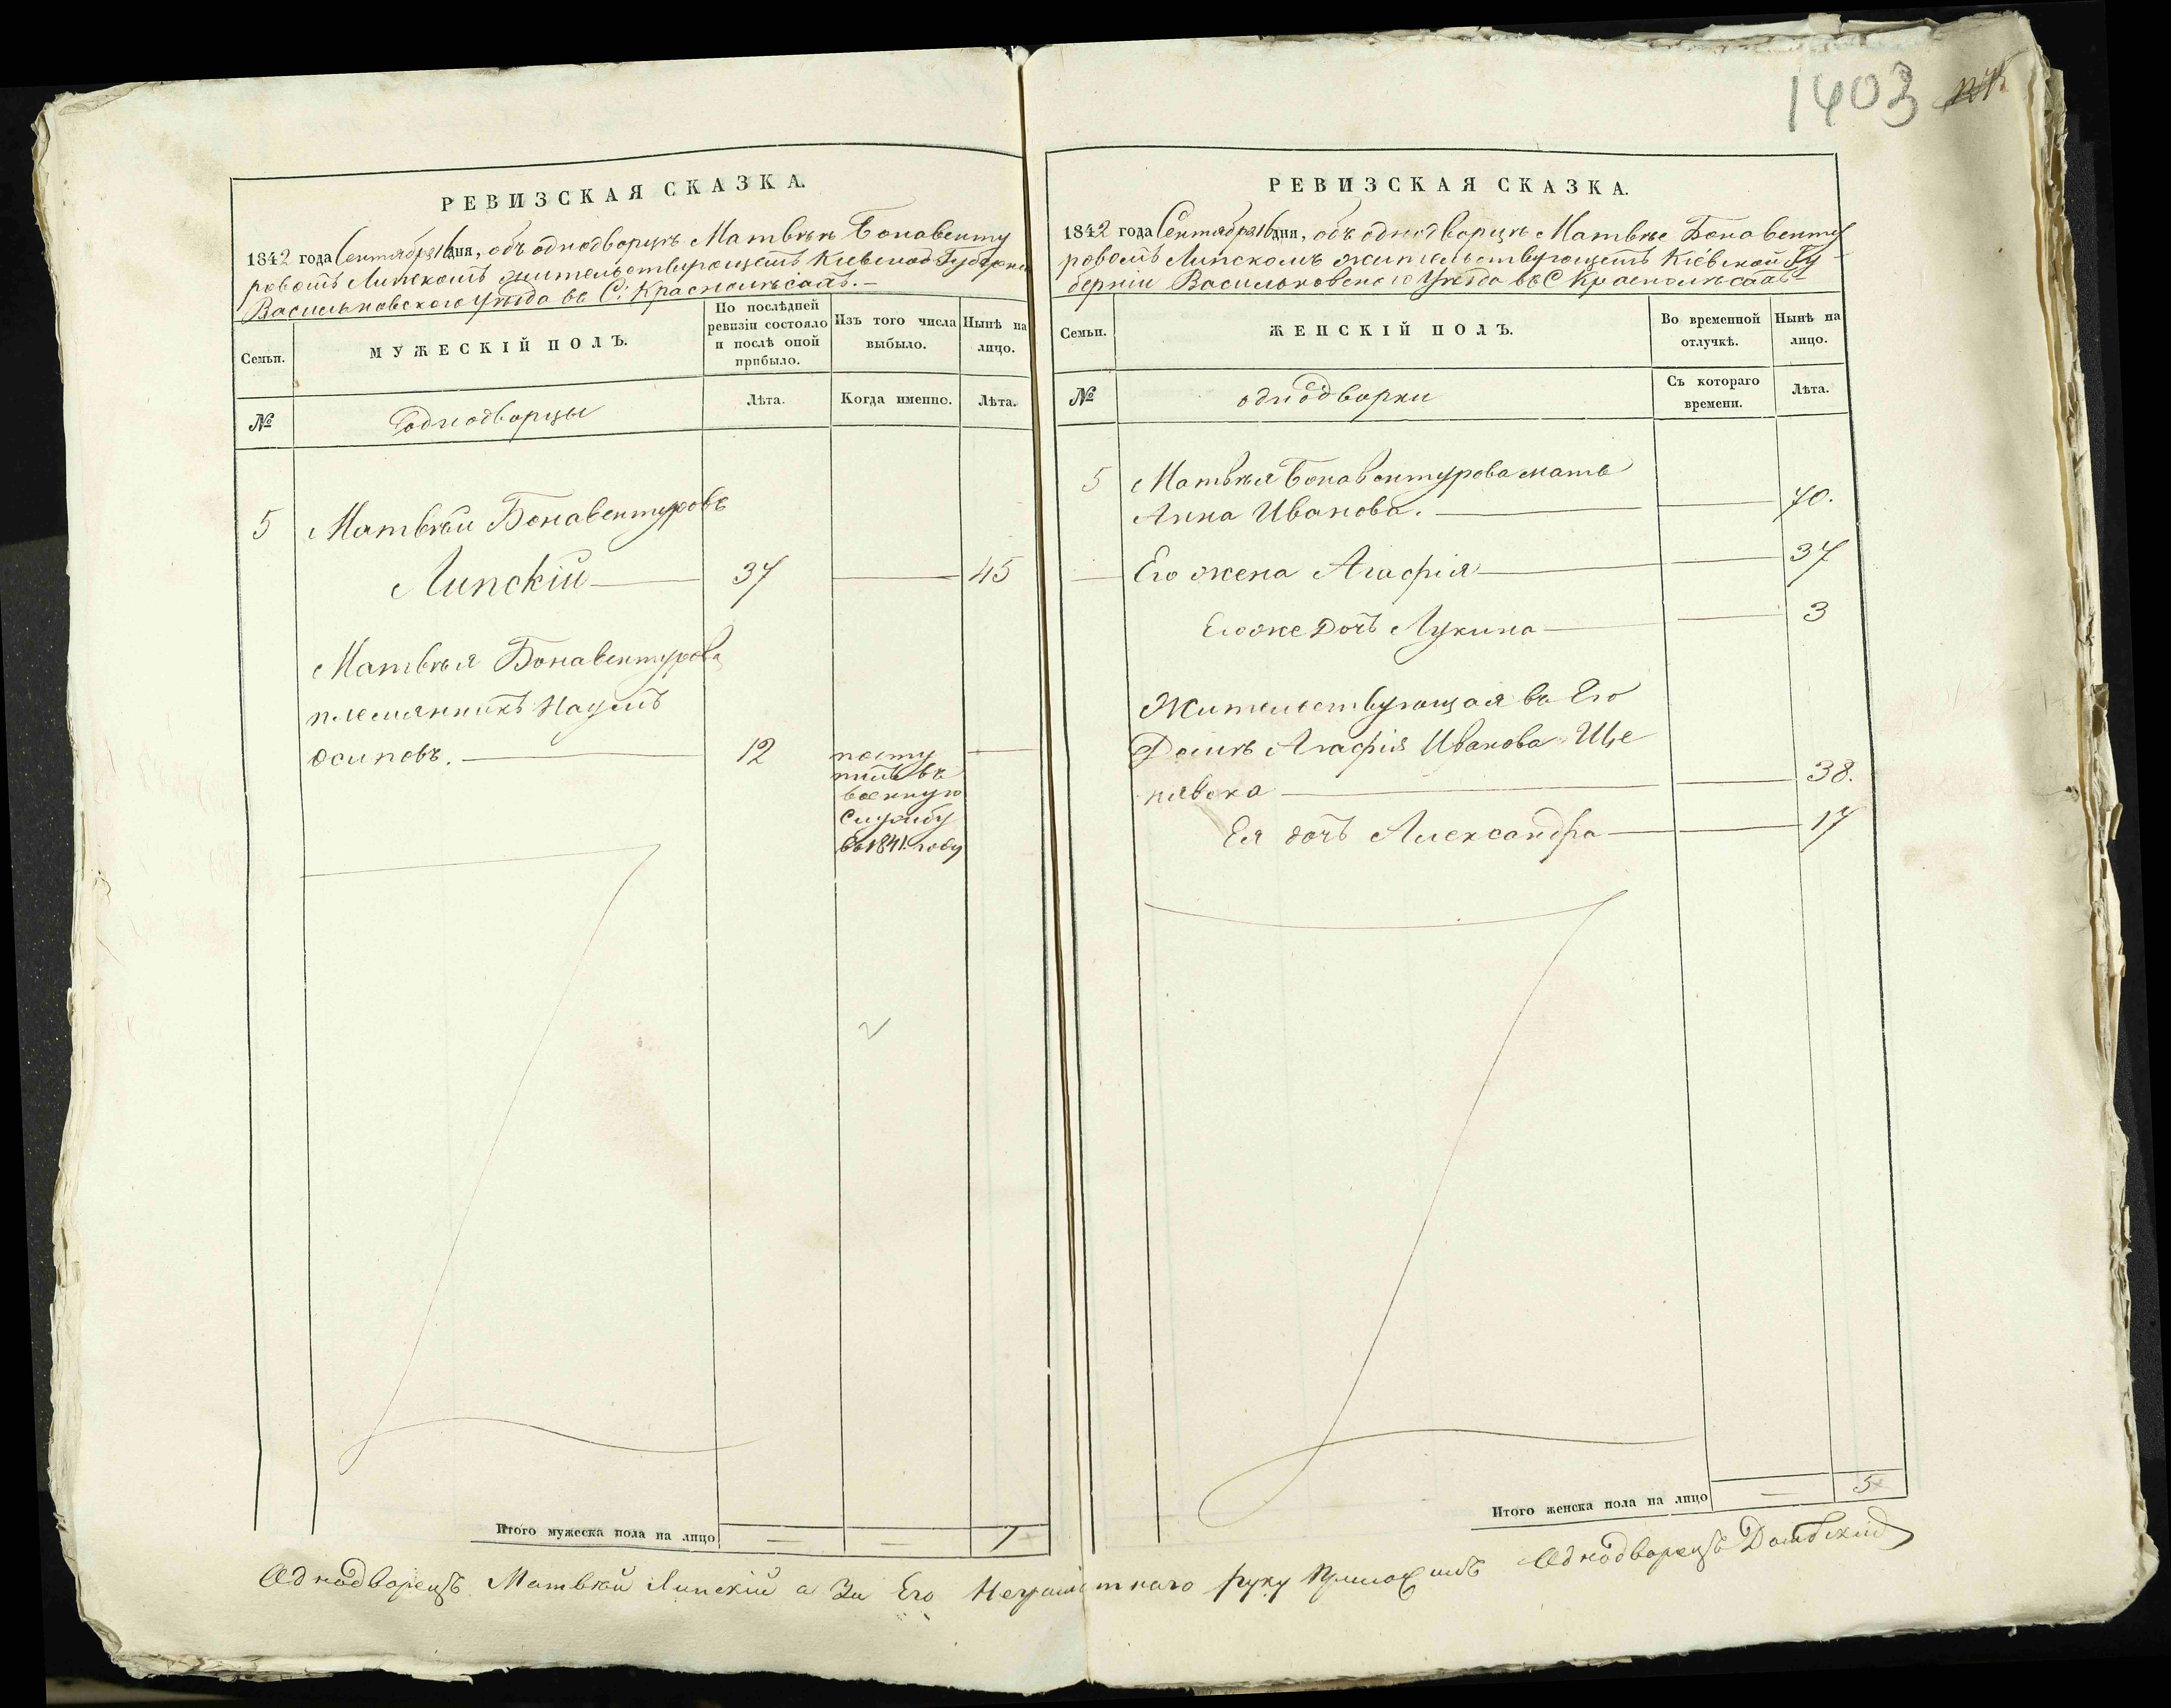 1403
РЕВИЗСКАЯ СКАЗКА.
1842 года Сентября 16 дня, объ однодворцѣ Матвѣѣ Бонавенту
ровомъ Липскомъ жительствующемъ Кіевской Губерніи
Васильковского уѣзда въ С.
Семьи.
МУЖЕСКІЙ ПОЛЪ.
По послѣдней ревизіи состояло и послѣ оной прибыло.
Изъ того числа выбыло.
Нынѣ на лицо.
№
Однодворцы
Лѣта.
Когда именно.
Лѣта.
5 Матвѣй Бонавентуровъ
Липскій 37 45
Матвѣя Бонавентурова
племянникъ Наумъ
Осиповъ. 12
посту
пилъ въ
военную
службу
въ 1841. году
Итого мужеска пола на лицо = = 1
РЕВИЗСКАЯ СКАЗКА.
1842 года Сентября 16 дня, объ однодворцѣ Матвѣе Бонавенту
ровомъ Липскомъ жительствующемъ Кіевской Гу
берніи Васильковского уѣзда въ С
Семьи.
ЖЕНСКІЙ ПОЛЪ.
Во временной отлучкѣ.
Нынѣ на лицо.
№
однодворки
Съ котораго времени.
Лѣта.
5 Матвѣя Бонавентурова мать
Анна Иванова. 70.
Его жена Агафія 37
Его же дочь Лукина 3
Жительствующая въ Его
Домѣ Агафія Иванова Ще
нявска 38.
Ея дочь Александра 17
Итого женска пола на лицо — 5
Однодворецъ Матвѣй Липскій а За Его Неграмотнаго руку Приложилъ Однодворецъ Домбскій